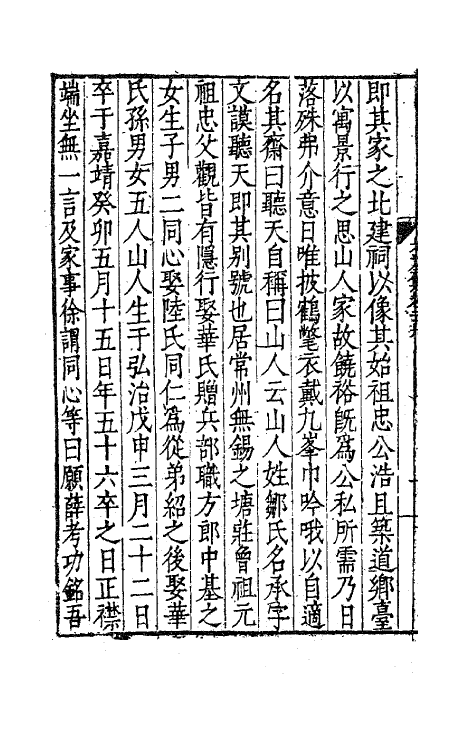 即其家之北建祠以像其始祖忠公浩且築道鄉臺
以寓景行之思山人家故饒裕旣爲公私所需乃日
落殊弗介意日唯披鶴氅衣戴九峯巾吟哦以自適
名其齋曰聽天自稱曰山人云山人姓鄒氏名承字
文謨聽天即其别號也居常州無錫之塘莊曾祖元
祖忠父觀皆有隱行娶華氏贈兵部職方郎中基之
女生子男二同心娶陸氏同仁爲從弟紹之後娶華
氏孫男女五人山人生于弘治戊申三月二十二日
卒于嘉靖癸卯五月十五日年五十六卒之日正襟
端坐無一言及家事徐謂同心等曰願薛考功銘吾